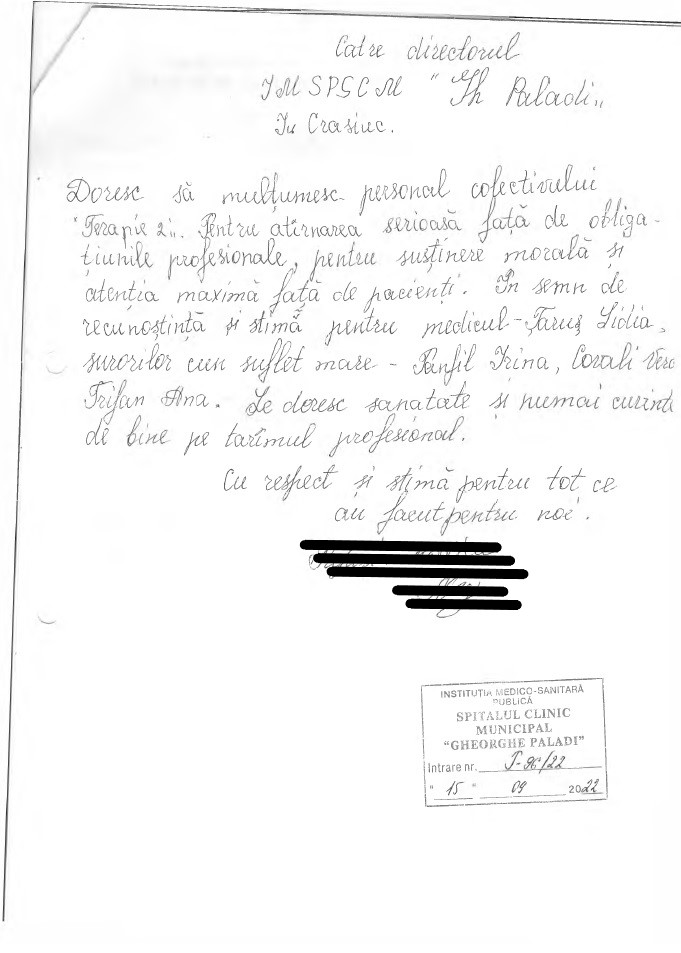 Catre directorul
IMSPSCM "Gh Paladi„
Iu Crasiuc.
Doresc să mulțumesc personal colectivului
"Terapie 2„. Pentru atîrnarea serioasă față de obliga-
țiunile profesionale, pentru susținere morală și
atenția maximă față de pacienți. În semn de
recunoștință și stimă pentru medicul - Țaruș Lidia,
surorilor cun suflet mare - Panfil Irina, Covali Vero
Trifan Ana. Le doresc sanatate și numai cuvinte
de bine pe tarîmul profesional.
Cu respect și stimă pentru tot ce
au facut pentru noi.
INSTITUȚIA MEDICO-SANITARĂ
PUBLICĂ
SPITALUL CLINIC
MUNICIPAL
"GHEORGHE PALADI"
Intrare nr. T-96/22
" 15 " 09 2022